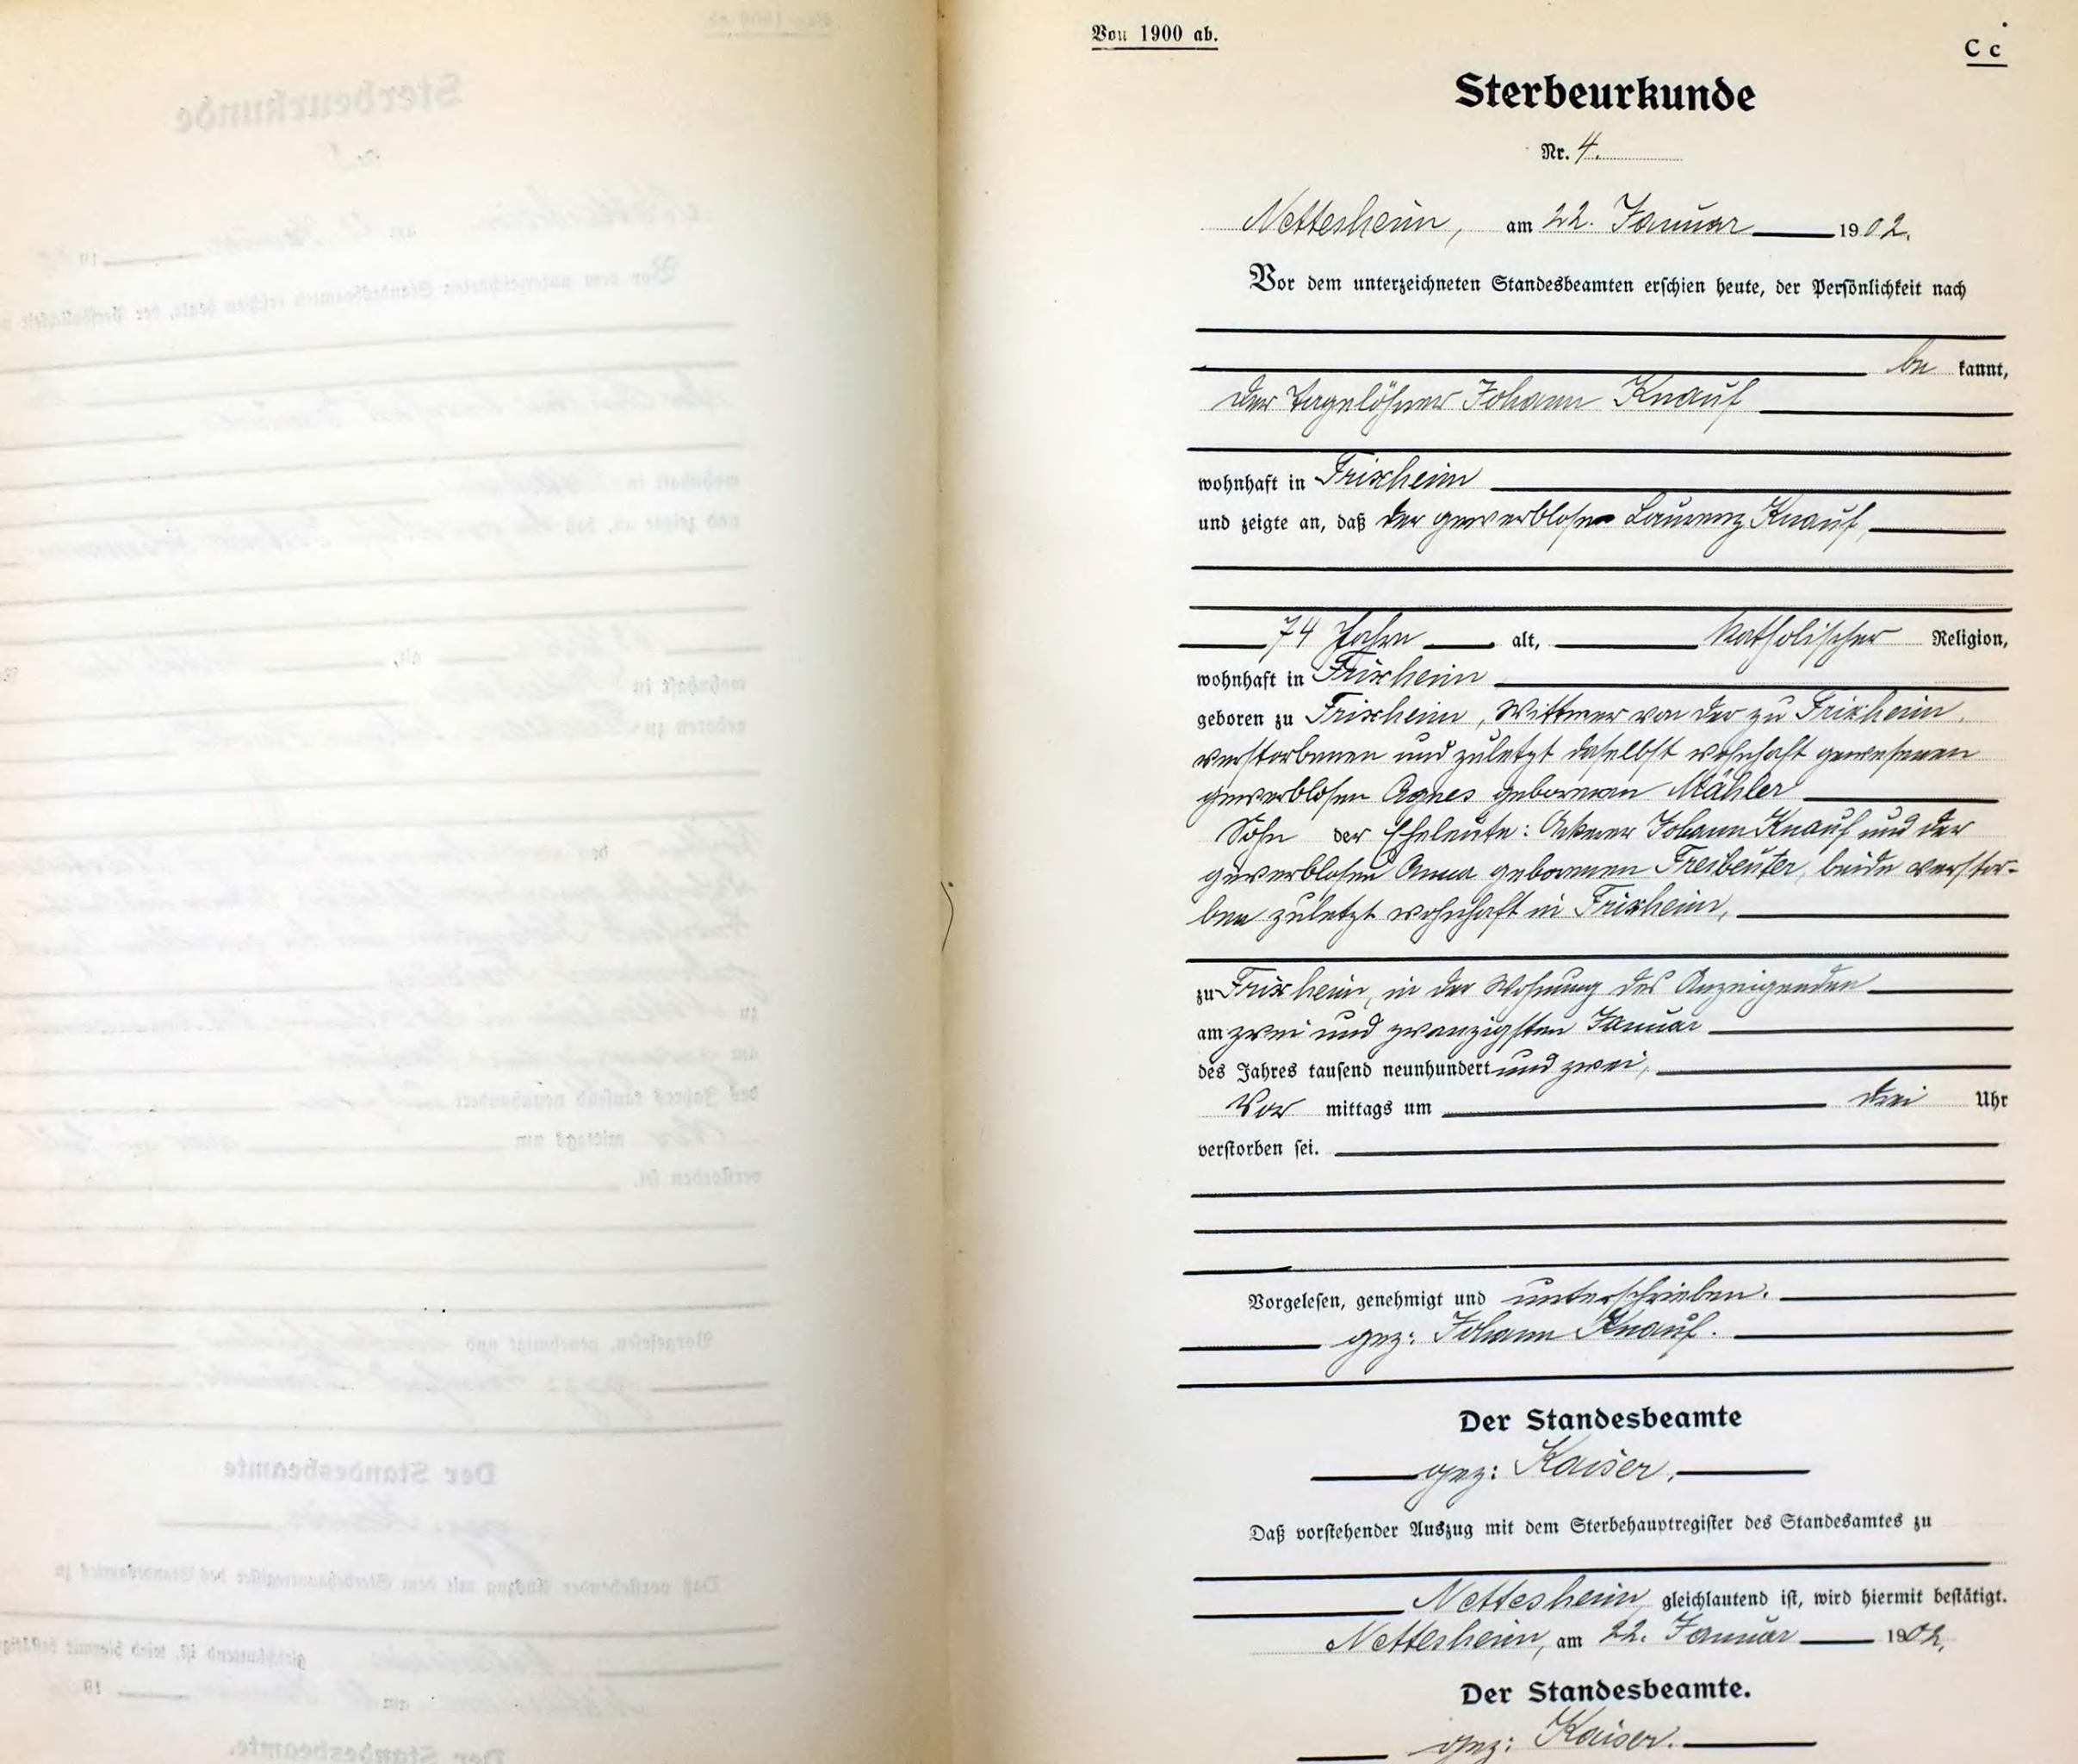 Von 1900 ab.
C c
Sterbeurkunde
Nr. 4.
Nettesheim, am 22. Januar 1902.
Vor dem unterzeichneten Standesbeamten erschien heute, der Persönlichkeit nach
be kannt,
der Tagelöhner Johann Knauf
wohnhaft in Frixheim
und zeigte an, daß der gewerblose Laurenz Knauf,
74 Jahre alt, katholischer Religion,
wohnhaft in Frixheim
geboren zu Frixheim, Wittwer von der zu Frixheim
verstorbenen und zuletzt daselbst wohnhaft gewesenen
gewerblosen Agnes geborenen Mähler
Sohn der Eheleute: Ackerer Johann Knauf und der
gewerblosen Anna geborenen Freibeuter, beide verstor-
ben zuletzt wohnhaft in Frixheim,
zu Frixheim, in der Wohnung des Anzeigenden
am zwei und zwanzigsten Januar
des Jahres tausend neunhundert und zwei,
Vor mittags um drei Uhr
verstorben sei.
Vorgelesen, genehmigt und unterschrieben.
gez: Johann Knauf.
Der Standesbeamte
gez: Kaiser.
Daß vorstehender Auszug mit dem Sterbehauptregister des Standesamtes zu
Nettesheim gleichlautend ist, wird hiermit bestätigt.
Nettesheim, am 22. Januar 1902.
Der Standesbeamte.
gez: Kaiser.